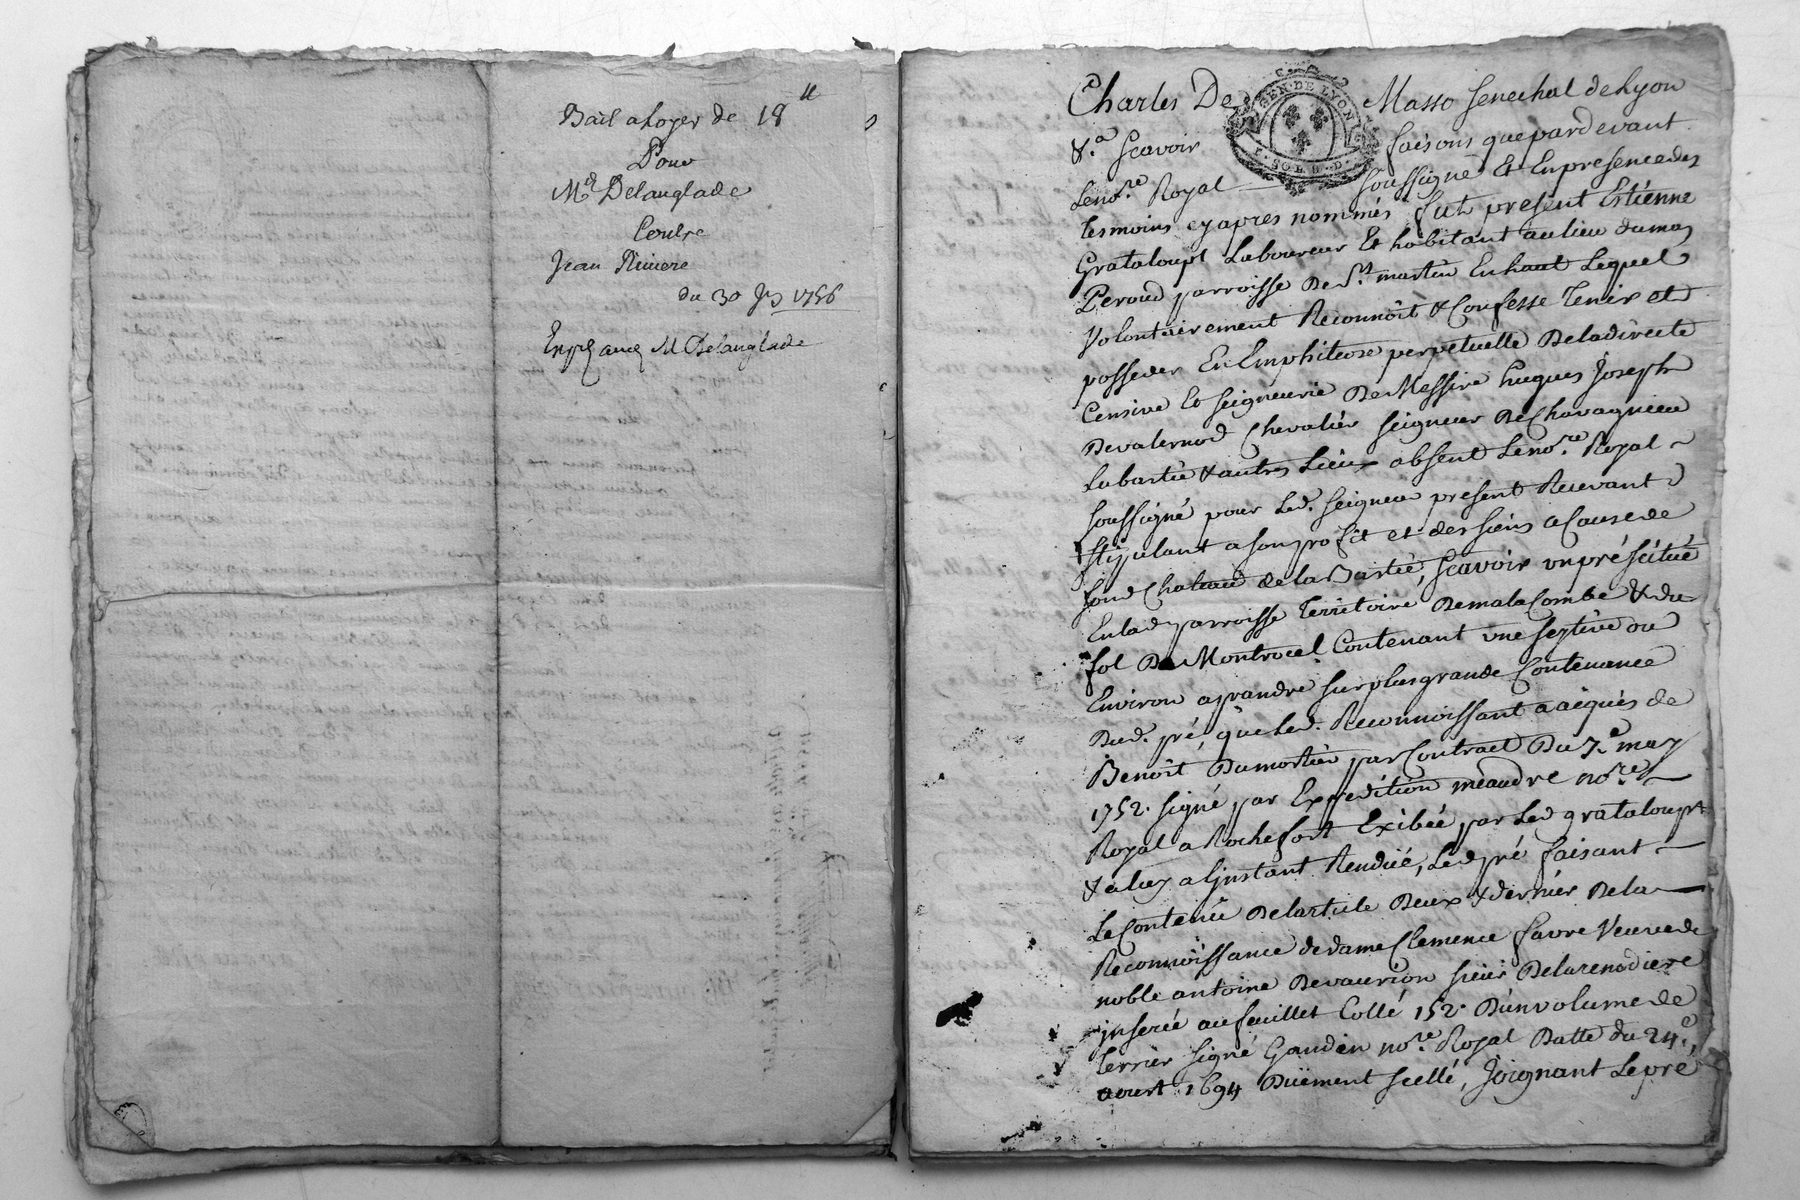 Bail a Loyer de 18 ll
Pour
Md Delanglade
Contre
Jean Riviere
du 30 1756
M Delanglade
Charles De Masso senechal de Lyon
&a Scavoir faisons que pardevant
Le nore Royal soussigné Et En presence des
tesmoins cy apres nommés fut present Estienne
Grataloupt Laboureur Et habitant au lieu du mas
Peroud parroisse De St martin En haut Lequel
Volontairement Reconnoit & Confesse Tenir et
posseder En Emphiteose perpetuelle De la directe
Censive Et seigneurie De Messire hugues Joseph
De valernod Chevalier seigneur De Chavagnieu
La bastie & autres Lieux absent Le nore Royal
soussigné pour Led. seigneur present Recevant
stipulant a son profit et des siens a Cause de
sond Chateau de la Bastie, Scavoir un pré scitué
En lad parroisse Territoire De malaCombe & du
fol De Montrocel Contenant une septive ou
Environ a prandre sur plus grande Contenance
Dud. pré, que Led. Reconnoissant a aequis de
Benoit Dumortier par Contract Du 7e may
1752. signé par Expedition meaudre nore
Royal a Rochefort Exibée par Led grataloupt
& a luy a L'instant Rendüe, Led pré faisant
Le Contenu De larticle Deux & dernier De la
Reconnoissance de dame Clemence favre Veuve de
noble antoine De vaurion sieur De larenodiere
inserée au feuillet Collé 152. D'un volume de
terrier signé Gaudin nore Royal Datte du 24e
aoust 1694 Düement scellé, Joignant Le pré
GEN. DE LYON
SOLS